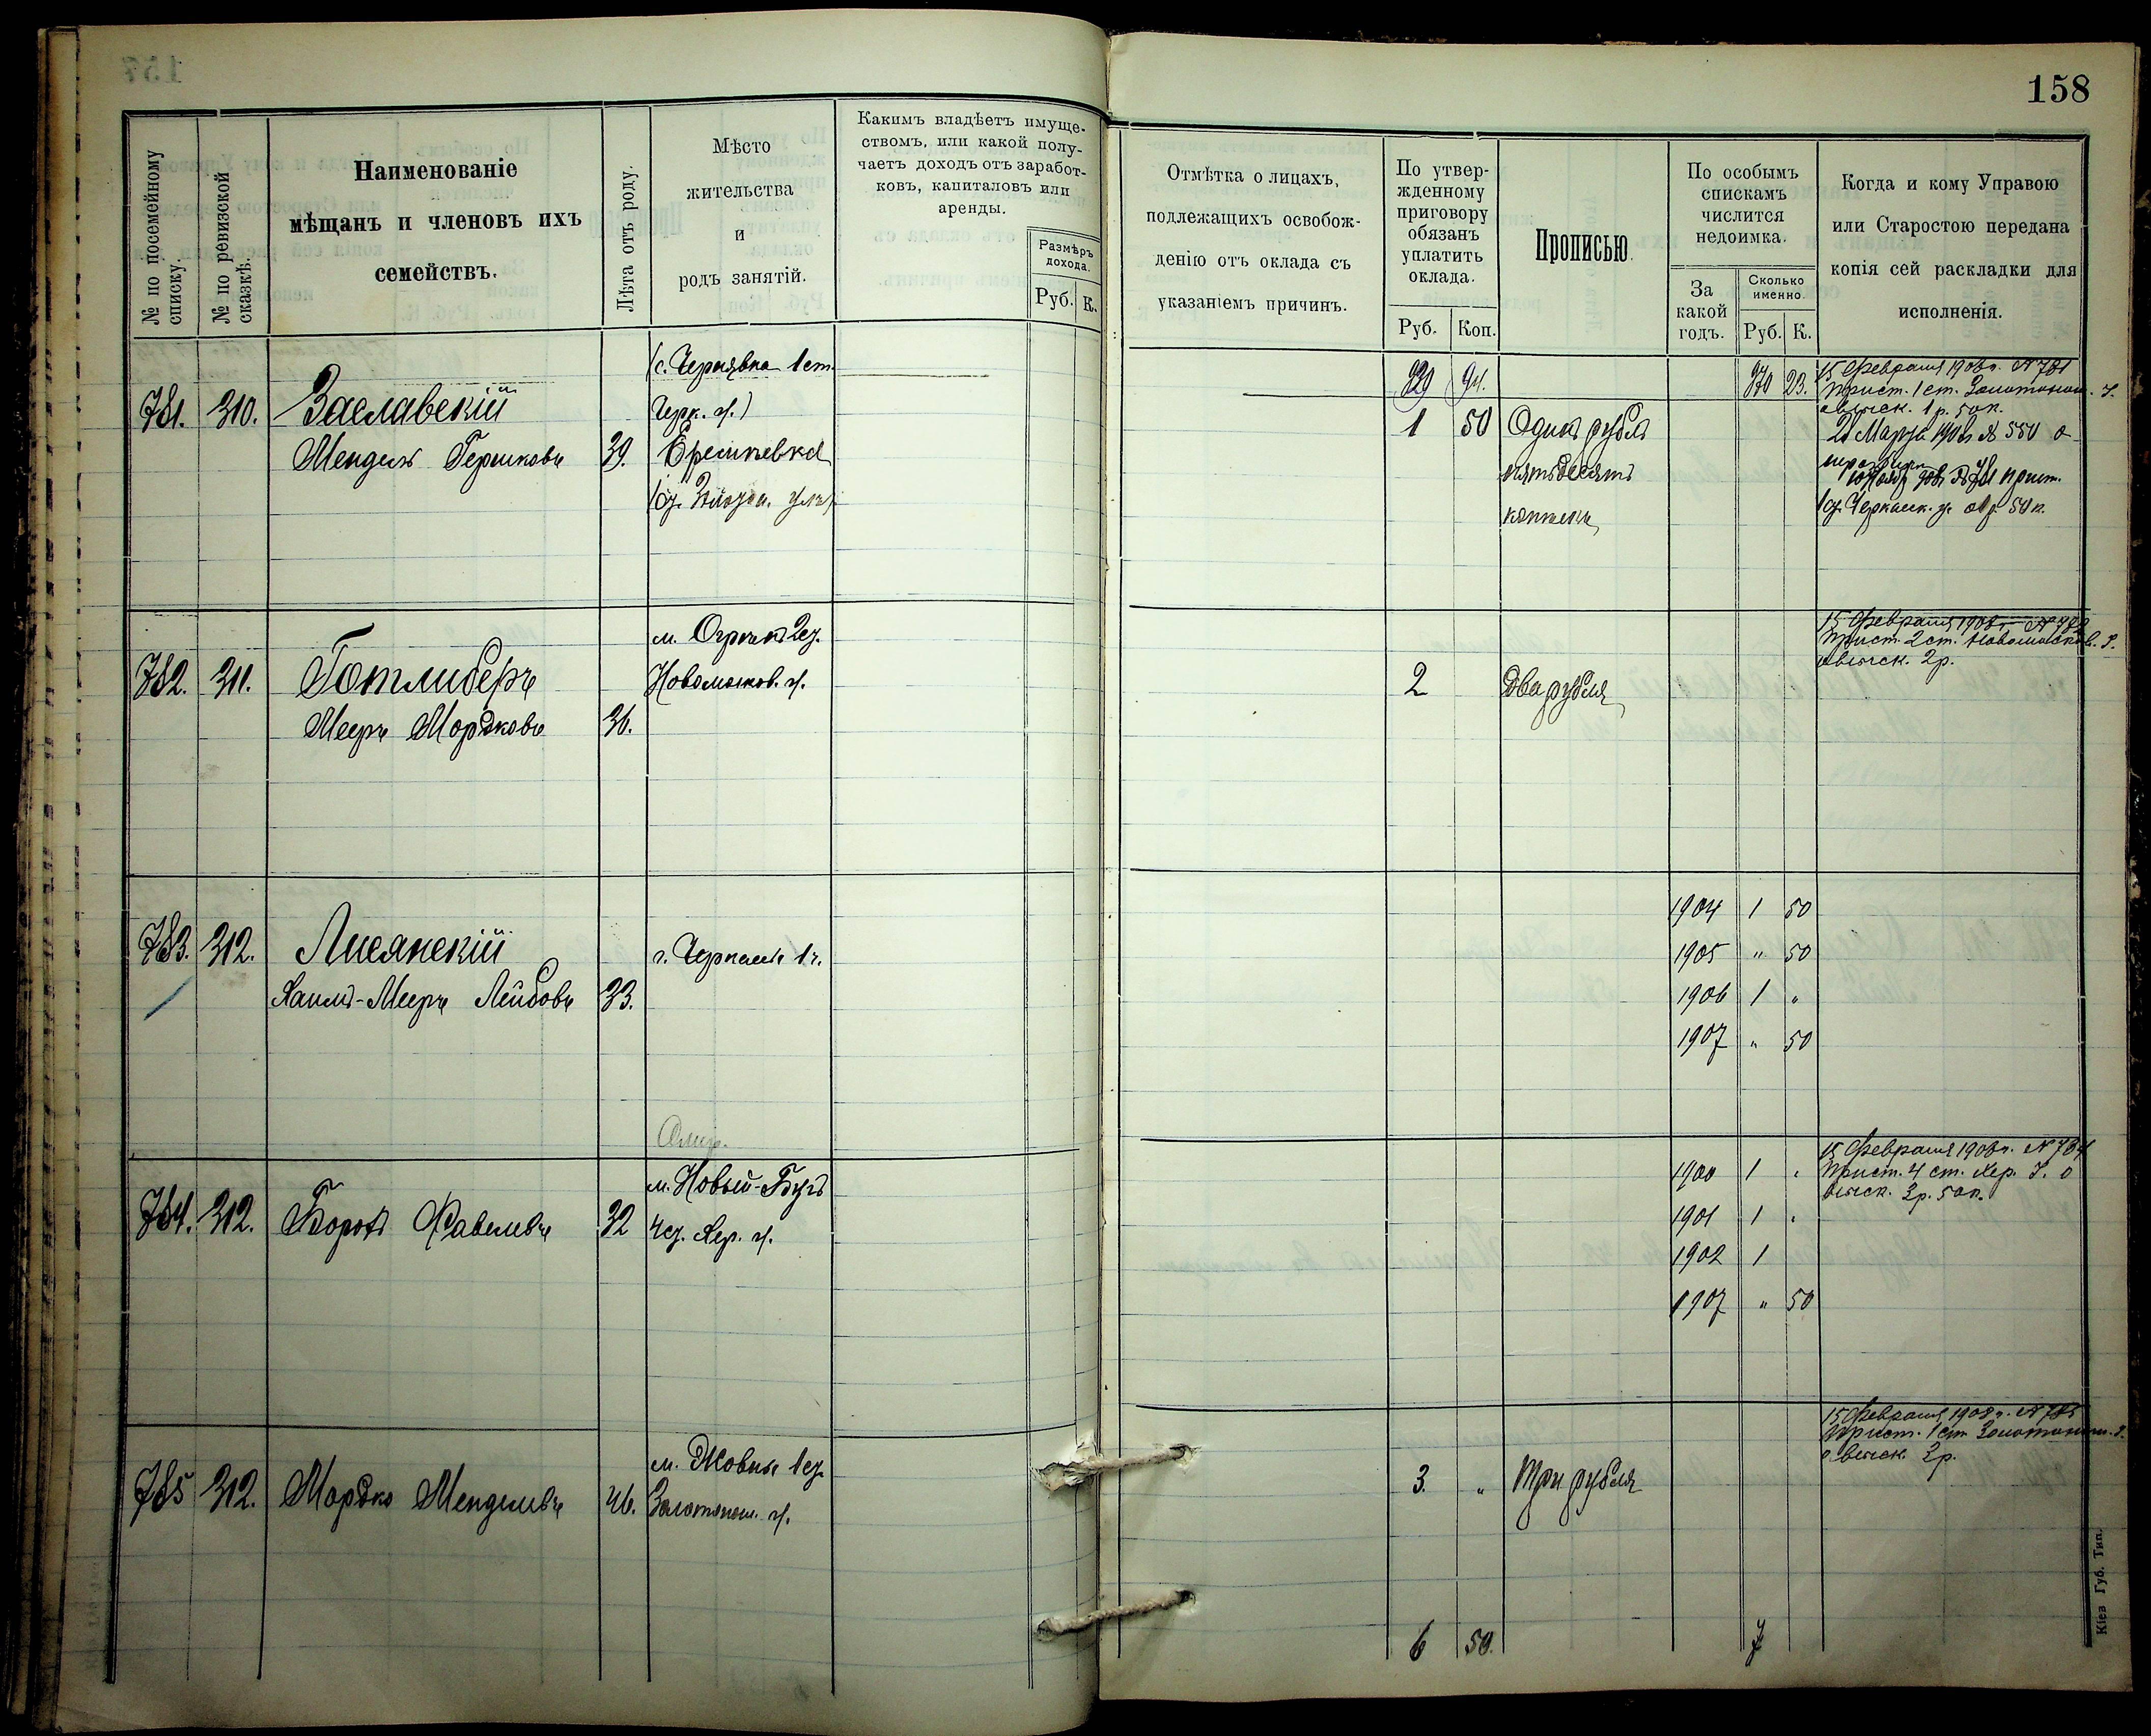 158
№ по посемейному списку.
№ по ревизской сказкѣ.
Наименованіе
мѣщанъ и членовъ ихъ
семействъ.
Лѣта отъ роду.
Мѣсто
жительства
и
родъ занятій.
Какимъ владѣетъ имуще-
ствомъ, или какой полу-
чаетъ доходъ отъ заработ-
ковъ, капиталовъ или
аренды.
Размѣръ
дохода.
Руб. К.
Отмѣтка о лицахъ,
подлежащихъ освобож-
денію отъ оклада съ
указаніемъ причинъ.
По утвер-
жденному
приговору
обязанъ
уплатить
оклада.
Руб. Коп.
Прописью.
По особымъ
спискамъ
числится
недоимка.
За
какой
годъ.
Сколько
именно.
Руб. К.
Когда и кому Управою
или Старостою передана
копія сей раскладки для
исполненія.
(с. Чернявка 1 ст.
Черк. у.)
781. 310. Заславскій
Мендель Гершковъ 39.
1 50 Одинъ рубль
пятьдесятъ
копѣекъ
370 23.
15 Февраля 1908 г. № 781
Прист. 1 ст. Золотонош. У.
о взыск. 1 р. 50 к.
Черкасск. у. о 1 р. 50 к.
782. 311. Готлиберъ
Мееръ Мордковъ 36.
Новомосков. у.
2 Два рубля
15 Февраля 1908 г. № 782
Прист. 2 ст. Новомосков. У.
о взыск. 2 р.
783. 312. Лисянскій
Хаимъ-Мееръ Лейбовъ 33.
г. Черкассы 1 ч.
1904 1 50
1905 " 50
1906 1 "
1907 " 50
784. 312. Борохъ 32
м. Новый-Бугъ
Хер. у.
1900 1 "
1901 1 "
1902 1
1907 " 50
15 Февраля 1908 г. № 784
Прист. 4 ст. Хер. У. о
взыск. 3 р. 50 к.
785 312. Мордко Менделевъ 46.
м. Жовны
Золотонош. у.
3. " Три рубля
15 Февраля 1908 г. № 785
Прист. 1 ст. Золотонош. У.
о взыск. 3 р.
6 50. 7
Кіев Губ. Тип.